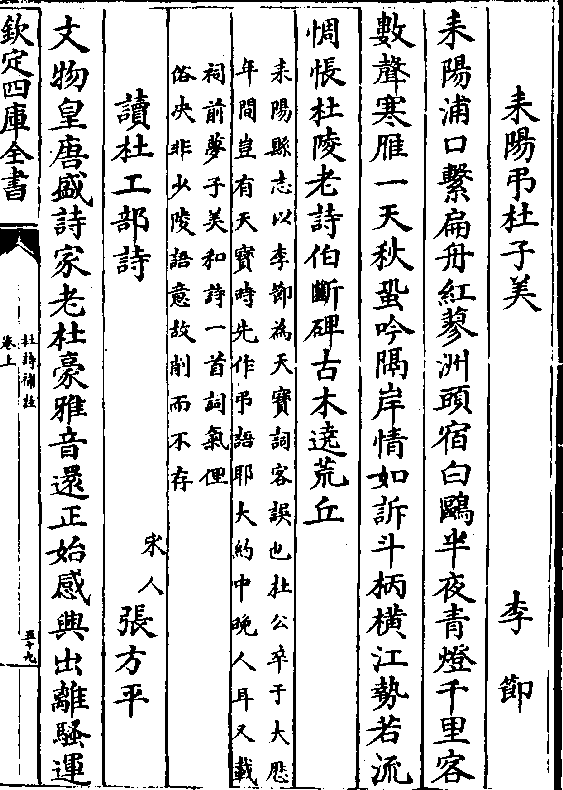 耒陽弔杜子美　李節
耒陽浦口繫扁舟紅蓼洲頭宿白鷗半夜青燈千里客
數聲寒雁一天秋蛩吟隔岸情如訴斗柄橫江勢若流
惆悵杜陵老詩伯斷碑古木遶荒丘
耒陽縣志以李節為天寶詞客誤也杜公卒于大厯
年間豈有天寶時先作弔語耶大約中晚人耳又載
祠前夢子美和詩一首詞氣俚
俗決非少陵語意故削而不存
讀杜工部詩　宋人張方平
文物皇唐盛詩家老杜豪雅音還正始感興出離騷運
欽定四庫全書
杜詩補註
卷上
五十九